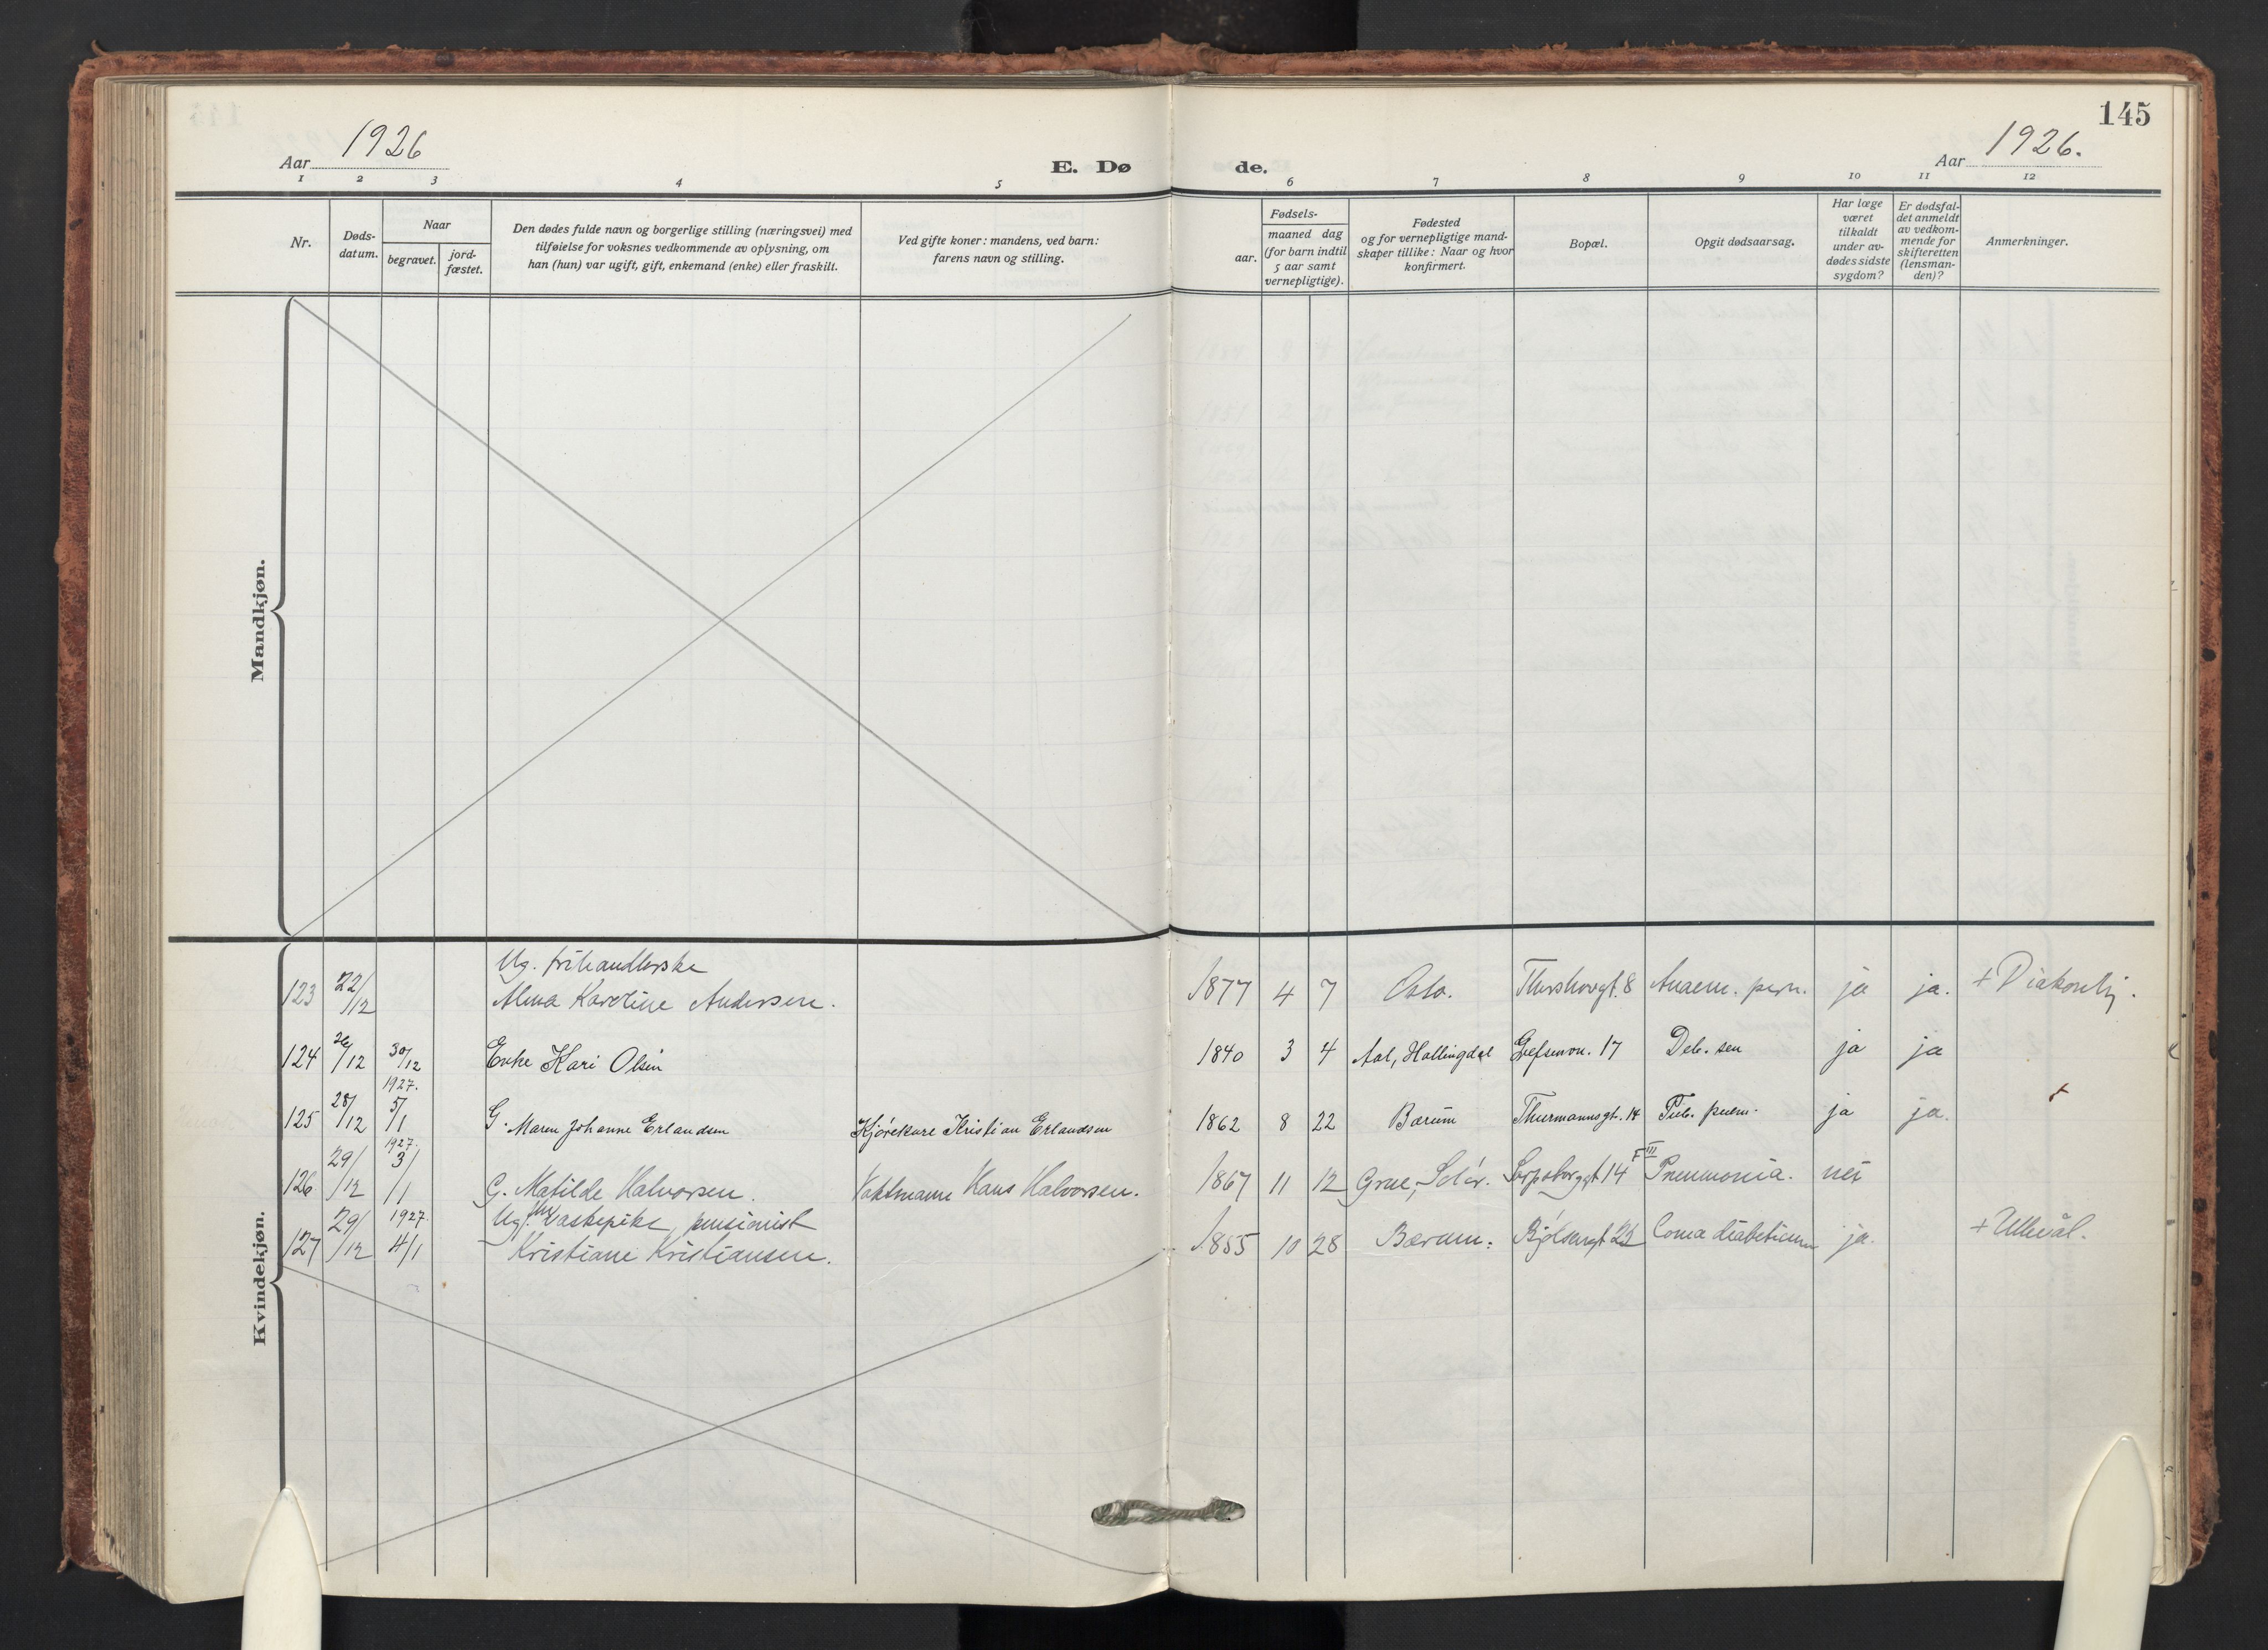 145
Aar 1926
E. Dø
de.
Aar 1926.
1 2 3 4 5 6 7 8 9 10 11 12
Nr.
Døds-
datum.
Naar
begravet.
jord-
fæstet.
Den dødes fulde navn og borgerlige stilling (næringsvei) med
tilføielse for voksnes vedkommende av oplysning, om
han (hun) var ugift, gift, enkemand (enke) eller fraskilt.
Ved gifte koner: mandens, ved barn:
farens navn og stilling.
Fødsels-
aar.
maaned dag
(for barn indtil
5 aar samt
vernepligtige).
Fødested
og for vernepligtige mand-
skaper tillike: Naar og hvor
konfirmert.
Bopæl.
Opgit dødsaarsag.
Har læge
været
tilkaldt
under av-
dødes sidste
sygdom?
Er dødsfal-
det anmeldt
av vedkom-
mende for
skifteretten
(lensman-
den)?
Anmerkninger.
Mandkjøn.
Kvindekjøn.
Ug. frihandlerske
123 22/12 Alma Karoline Andersen. 1877 4 7 Oslo. Thorshovgt. 8 Anaem. pern. ja ja. + Diakonhj.
124 26/12 30/12 Enke Kari Olsen 1840 3 4 Aal, Hallingdal Grefsenvn. 17 Deb. sen ja ja
1927.
125 28/12 5/1 G. Maren Johanne Erlandsen Kjørekare Kristian Erlandsen 1862 8 22 Bærum Thurmannsgt. 14 Tub. pulm. ja ja. +
1927.
126 29/12 3/1 G. Matilde Halvorsen. Vaktmann Hans Halvorsen. 1867 11 12 Grue, Solør. Sarpsborggt 14 F III Pneumonia. nei
1927. Ug. Vaskepike, pensionist
127 29/12 4/1 Kristiane Kristiansen. 1855 10 28 Bærum. Bjølsengt 23 Coma diabeticum ja. + Ullevål.